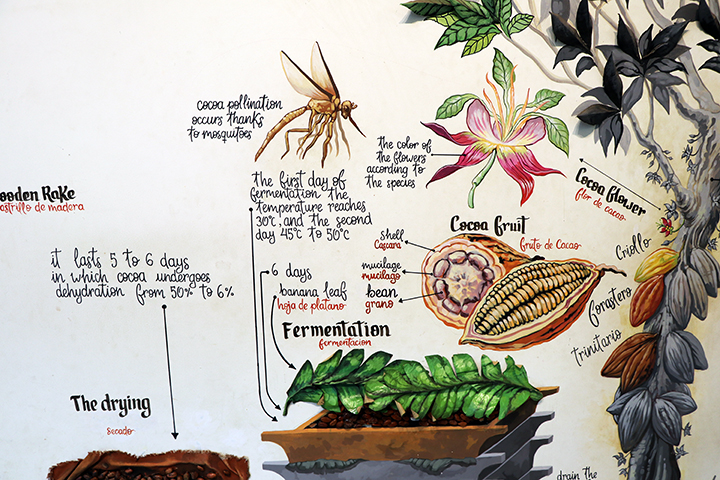 cocoa pollination
occurs thanks
to mosquitoes
the color of
the flowers
according to
the species
Cocoa flower
flor de cacao
ooden Rake
astrillo de madera
the first day of
fermentation the
temperature reaches
30°c, and the second
day 45°c to 50°c
Cocoa fruit
fruto de Cacao
shell
Cascara
mucilage
mucilago
bean
grano
Criollo
forastero
trinitario
it lasts 5 to 6 days
in which cocoa undergoes
dehydration from 50% to 6%
6 days
banana leaf
hoja de platano
Fermentation
fermentacion
The drying
secado
drain the